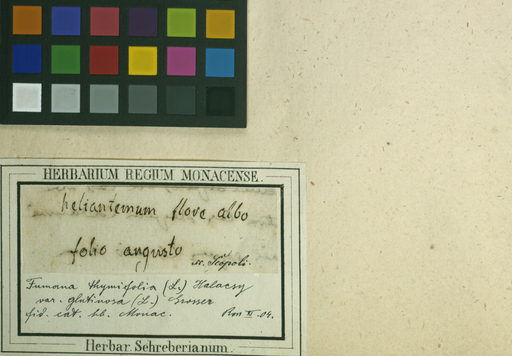 HERBARIUM REGIUM MONACENSE.
heliantemum flore albo
folio angusto
Fumana thymifolia (L.) Halacsy
var. glutinosa (L.) Grosser
fid. cat. hb. Monac.
Herbar. Schreberianum.